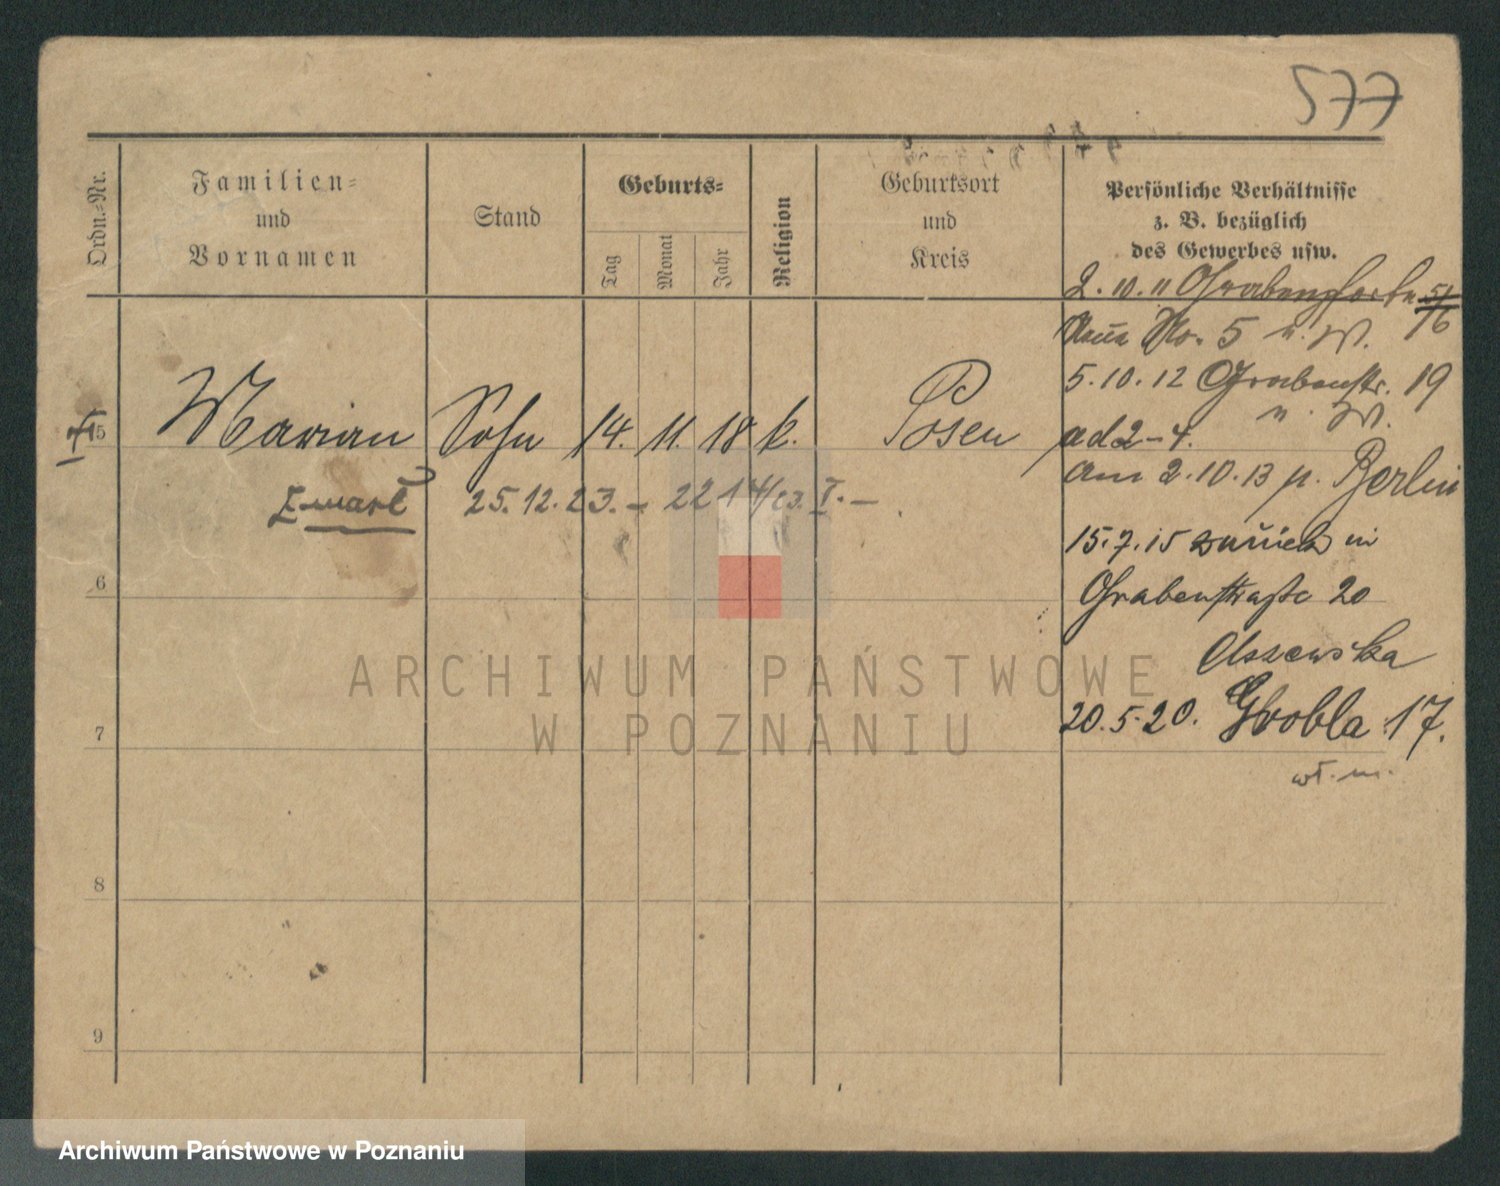 577
Ordn.-Nr.
Familien-
und
Vornamen
Stand
Geburts-
Tag
Monat
Jahr
Religion
Geburtsort
und
Kreis
Persönliche Verhältnisse
z. B. bezüglich
des Gewerbes usw.
2. 10. 11
No. 5 u. W.
5. 10. 12 Grabenstr. 19
u. W.
5 Marian Sohn 14. 11. 18 k. Posen
ad 2-4.
am 2. 10. 13 p. Berlin
Zmarł 25. 12. 23. -
15. 7. 15 zurück in
6
Grabenstraße 20
20. 5. 20. Grobla 17.
7
wł. m.
8
9
ARCHIWUM PAŃSTWOWE
W POZNANIU
Archiwum Państwowe w Poznaniu